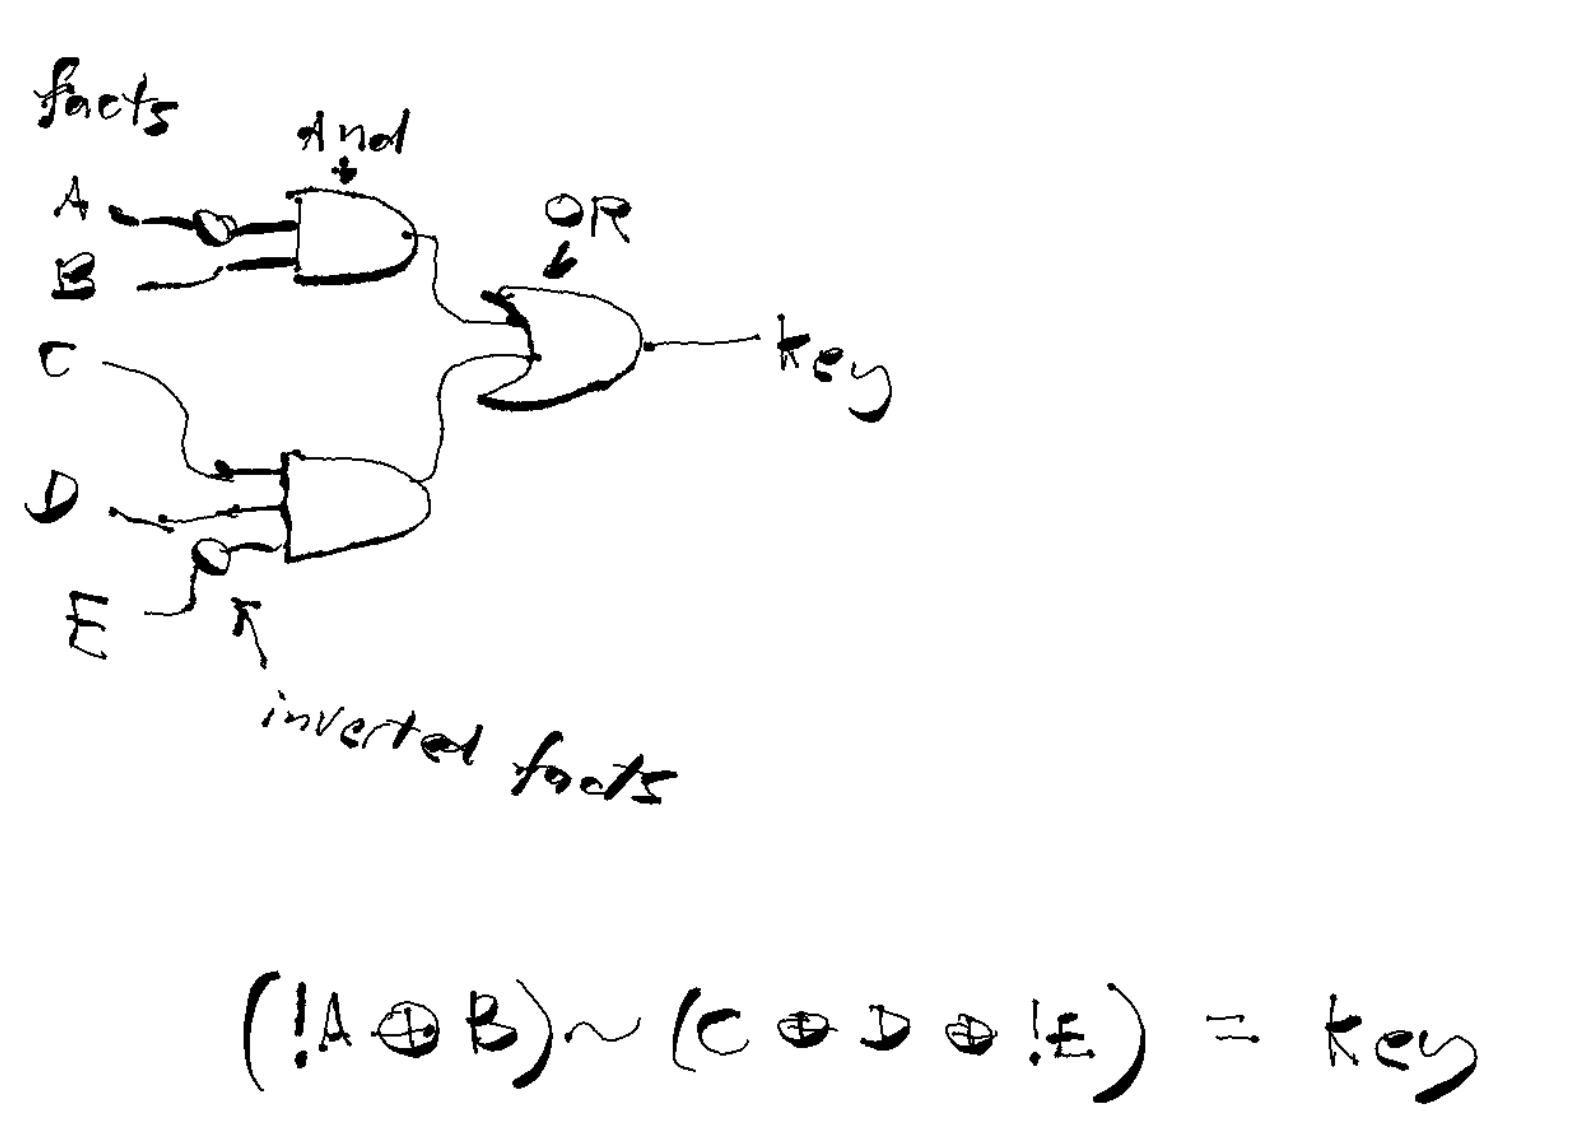 facts
And
A
OR
B
C
key
D
E
inverted facts
(!A ⊕ B) ~ (C ⊕ D ⊕ !E) = key